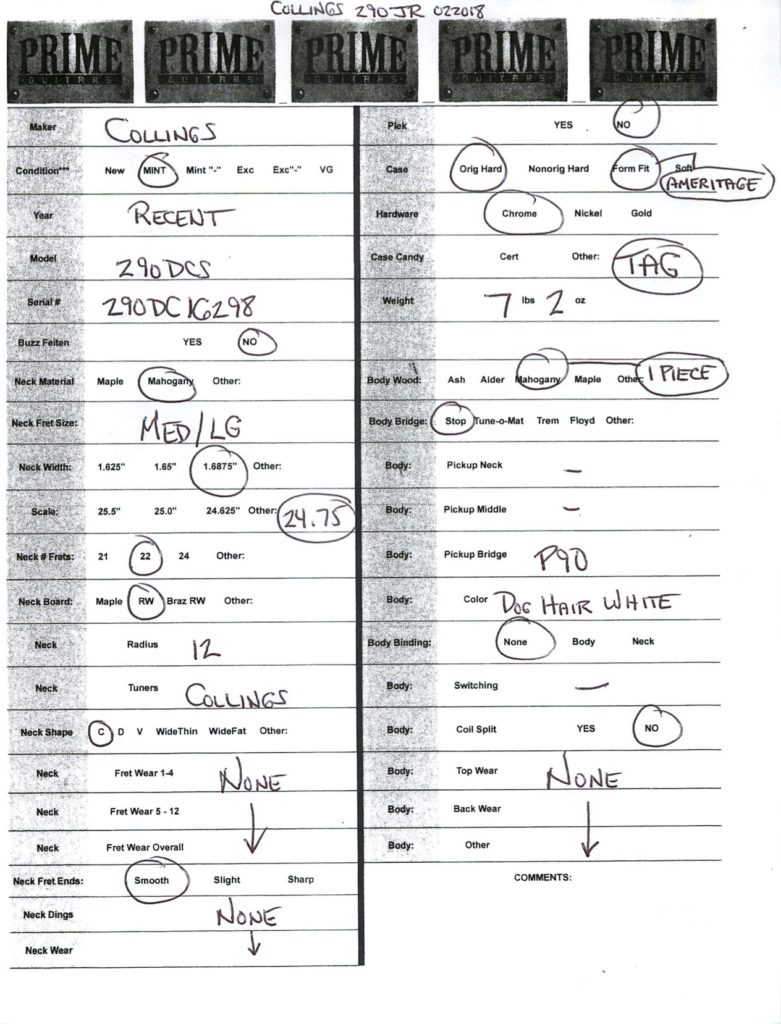 COLLINGS 290JR 022018
PRIME GUITARS PRIME GUITARS PRIME GUITARS PRIME GUITARS PRIME GUITARS
Maker COLLINGS
Condition*** New MINT Mint "-" Exc Exc"-" VG
Year RECENT
Model 290DCS
Serial # 290DC16298
Buzz Feiten YES NO
Neck Material Maple Mahogany Other:
Neck Fret Size: MED/LG
Neck Width: 1.625" 1.65" 1.6875" Other:
Scale: 25.5" 25.0" 24.625" Other: 24.75
Neck # Frets: 21 22 24 Other:
Neck Board: Maple RW Braz RW Other:
Neck Radius 12
Neck Tuners COLLINGS
Neck Shape C D V WideThin WideFat Other:
Neck Fret Wear 1-4 NONE
Neck Fret Wear 5 - 12
Neck Fret Wear Overall
Neck Fret Ends: Smooth Slight Sharp
Neck Dings NONE
Neck Wear
Plek YES NO
Case Orig Hard Nonorig Hard Form Fit Soft
AMERITAGE
Hardware Chrome Nickel Gold
Case Candy Cert Other: TAG
Weight 7 lbs 2 oz
Body Wood: Ash Alder Mahogany Maple Other: 1 PIECE
Body Bridge: Stop Tune-o-Mat Trem Floyd Other:
Body: Pickup Neck –
Body: Pickup Middle –
Body: Pickup Bridge P90
Body: Color DOG HAIR WHITE
Body Binding: None Body Neck
Body: Switching —
Body: Coil Split YES NO
Body: Top Wear NONE
Body: Back Wear
Body: Other
COMMENTS: